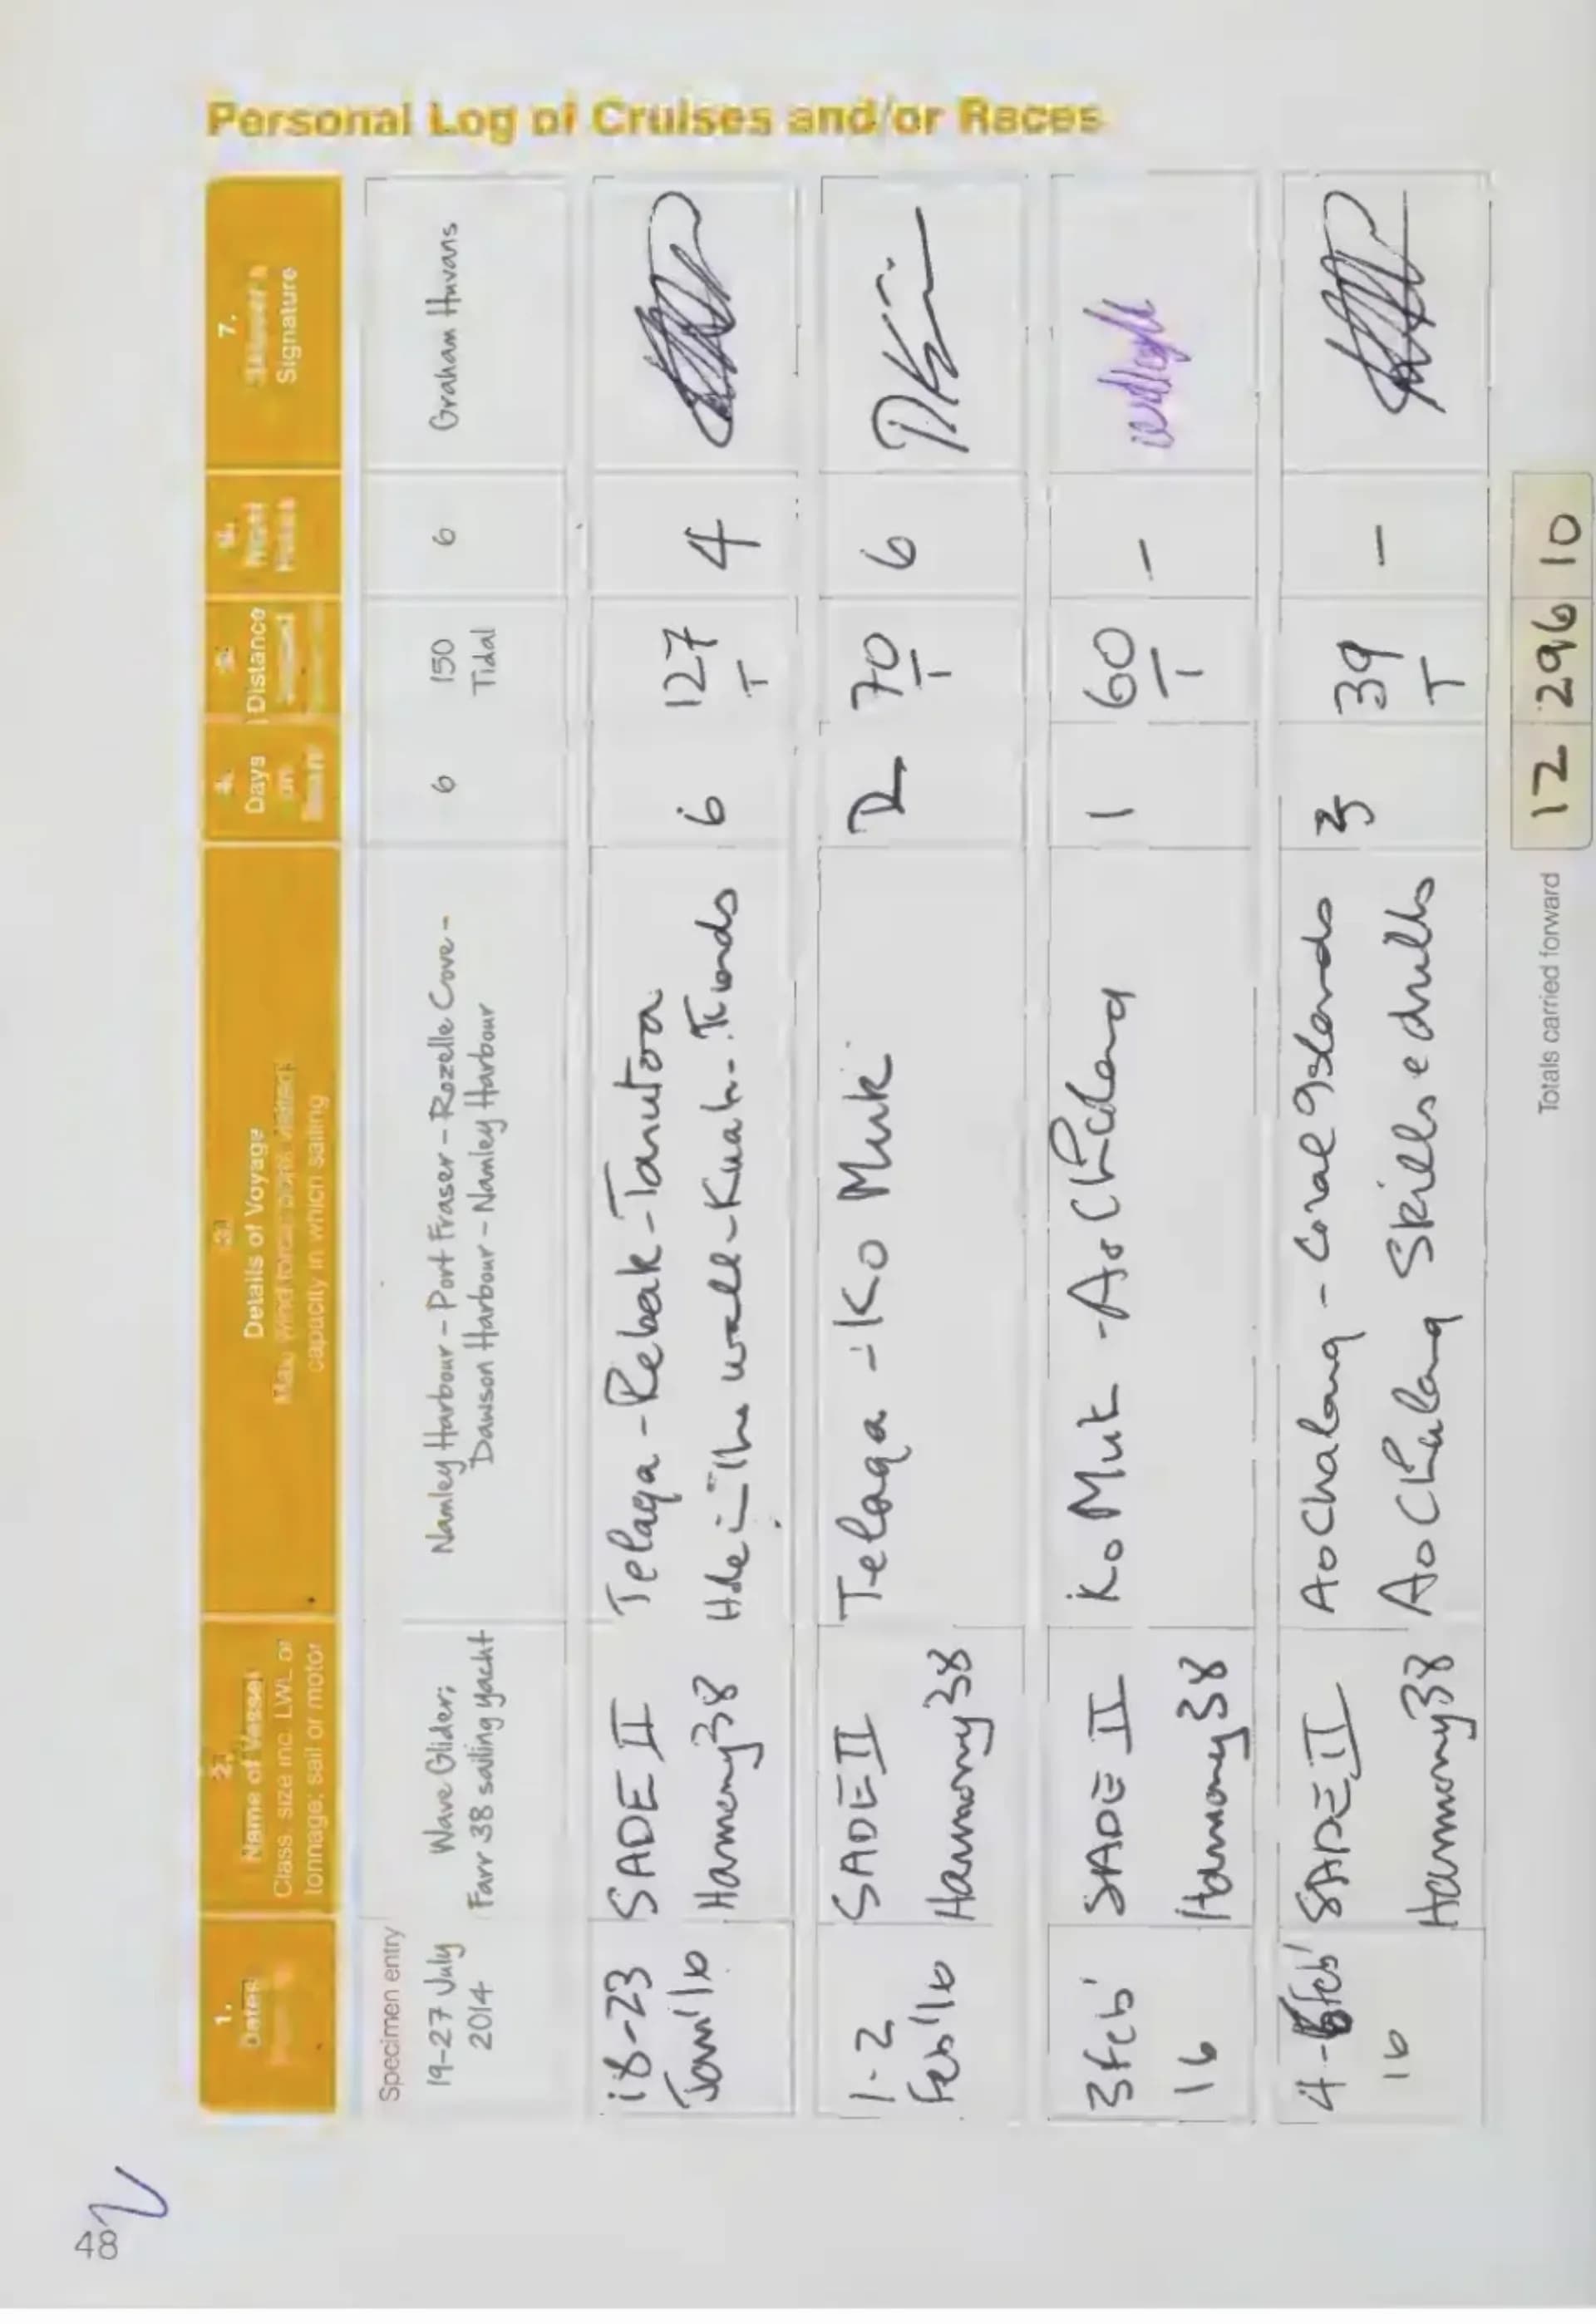 48
Personal Log of Cruises and/or Races
1.
Dates
2.
Name of Vessel
Class, size inc. LWL or
tonnage; sail or motor
3.
Details of Voyage
Max. wind force; ports visited;
capacity in which sailing
4.
Days
on
5.
Distance
6.
Night
7.
Signature
Specimen entry
19-27 July
2014
Wave Glider;
Farr 38 sailing yacht
Namley Harbour - Port Fraser - Rozelle Cove -
Dawson Harbour - Namley Harbour
6
150
Tidal
6
Graham Huvans
18-23
Jan'16
SADE II
Harmony 38
Telaga - Rebak - Tanutoa
Hole in the wall - Kuah -
6
127
T
4
1-2
Feb'16
SADE II
Harmony 38
Telaga - Ko Muk
2
70
T
6
3 Feb'
16
SADE II
Harmony 38
Ko Muk - Ao Chalong
1
60
T
-
4- Feb'
16
SADE II
Harmony 38
Ao Chalong - Coral Islands
Ao Chalong Skills e drills
3
39
T
-
Totals carried forward
12 296 10